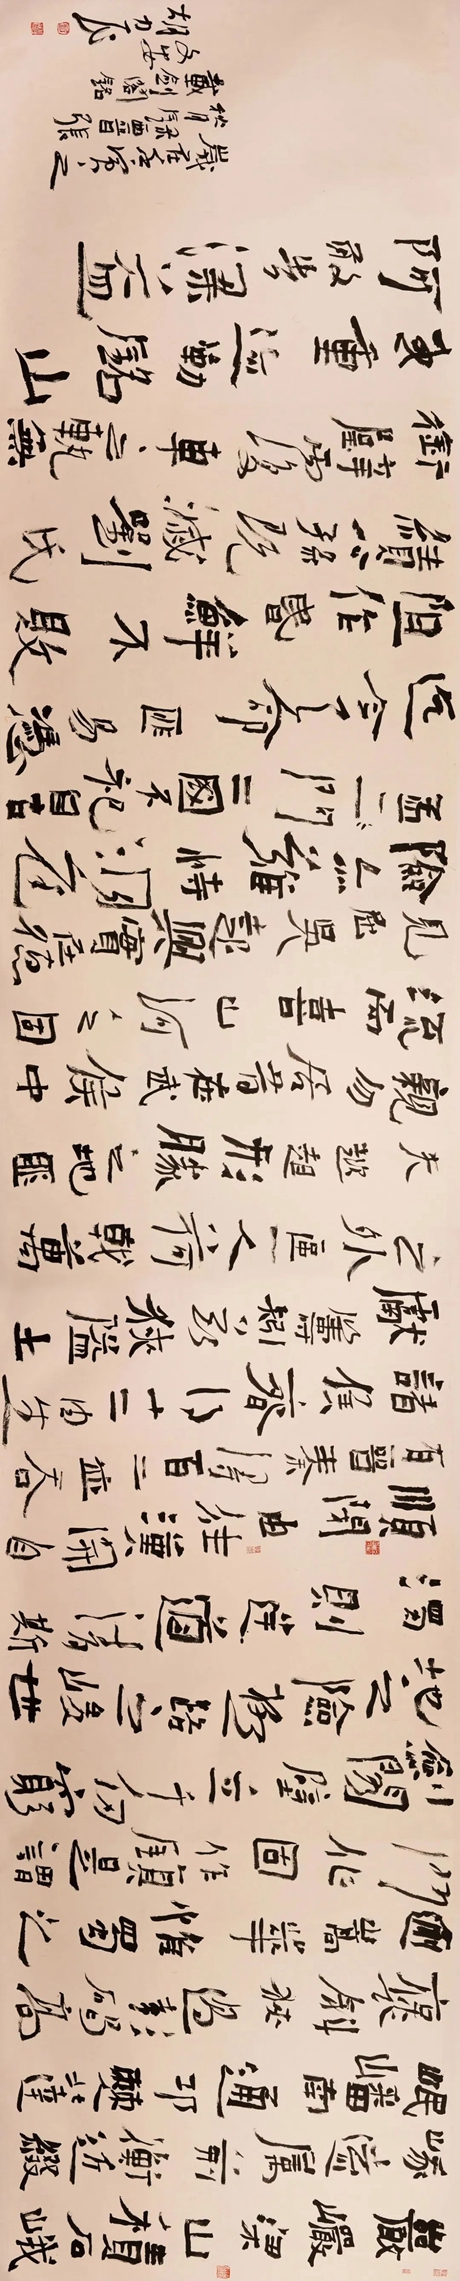 巖巖梁山積石峨
峨遠屬荊衡近綴
岷嶓南通邛僰北達
褒斜狹過彭碣高
逾嵩華惟蜀之
門作固作鎮是謂
劍閣壁立千仞窮
地之險極路之峻世
濁則逆道清斯
順閉由往漢開自
有晉秦得百二並吞
諸侯齊得十二田生
獻籌矧茲狹隘土
之外區一人荷戟萬
夫趑趄形勝之地匪
親勿居昔在武侯中
流而喜山河之固
見屈吳起興實在德
險亦難恃洞庭
孟門二國不祀自古
迄今天命匪易憑
阻作昏鮮不敗
績公孫既滅劉氏
銜璧覆車之軌無
或重跡勒銘山
阿敢告梁益
歲在寅之
秋月錄西晉張
載劍閣銘
文安
胡力